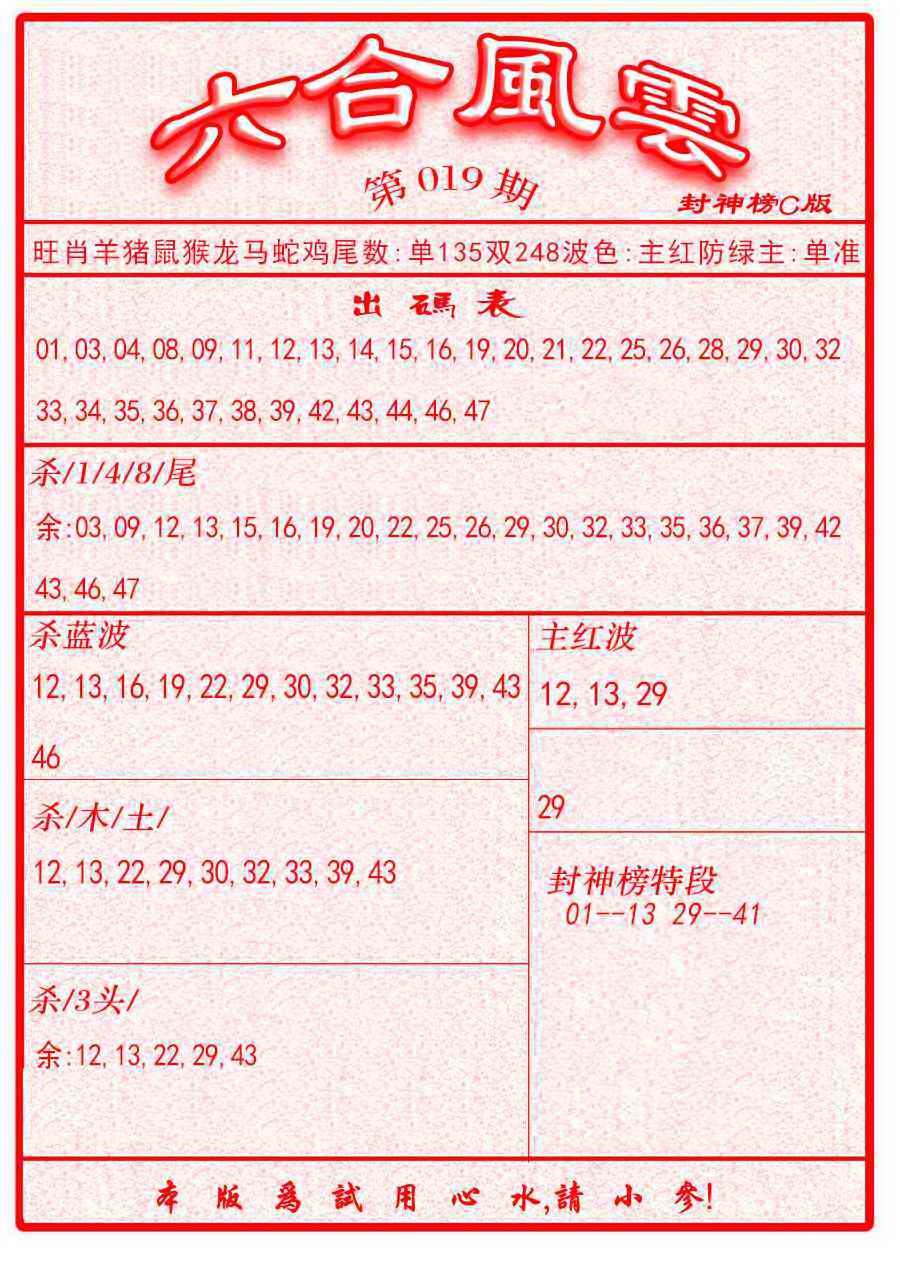 六合風雲
第 019 期
封神榜C版
旺肖羊猪鼠猴龙马蛇鸡尾数:单135双248波色:主红防绿主:单准
出碼表
01,03,04,08,09,11,12,13,14,15,16,19,20,21,22,25,26,28,29,30,32
33,34,35,36,37,38,39,42,43,44,46,47
杀/1/4/8/尾
余:03,09,12,13,15,16,19,20,22,25,26,29,30,32,33,35,36,37,39,42
43,46,47
杀蓝波
12,13,16,19,22,29,30,32,33,35,39,43
46
主红波
12,13,29
29
杀/木/土/
12,13,22,29,30,32,33,39,43
封神榜特段
01--13 29--41
杀/3头/
余:12,13,22,29,43
本版爲試用心水,請小參!